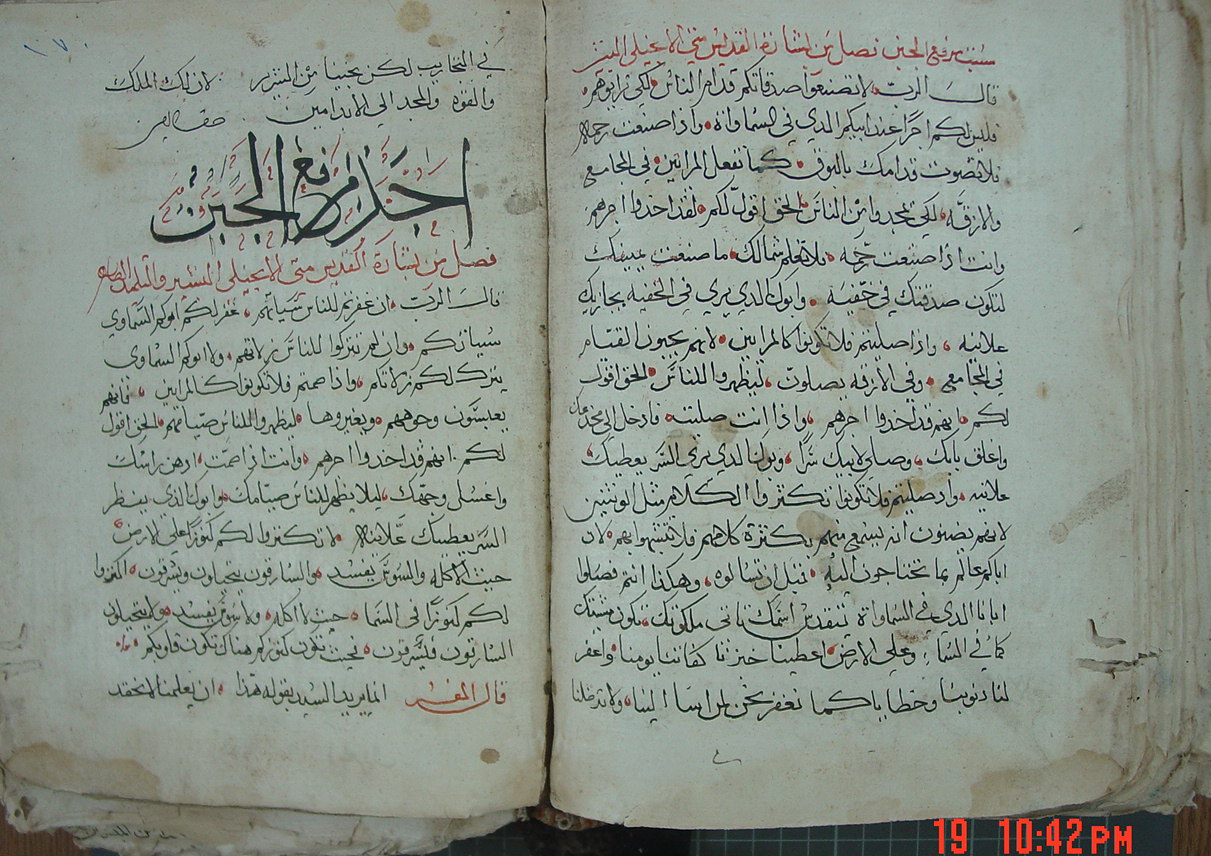 سبت مرفع الجبن فصل من بشارة القديس متي الانجيلي
قالــ الرب لا تصنعوا صدقاتكم قدام الناس لكي تراووهم
فليس لكم اجرًا عند ابيكم الدي في السماواة واذا صنعت رحمه
فلا تصوت قدامك بالبوق كما تفعل المرايين في المجامع
والازقه لكي يمجدوا من الناس الحق اقول لكم لقد اخدوا اجرهم
وانت اذا صنعت رحمه فلا تعلم شمالك ما صنعت يمينك
لتكون صدقتك في خفيه وابوك الدي يري في الخفيه يجازيك
علانيه واذا صليتم فلا تكونوا كالمرايين لانهم يحبون القيام
في المجامع وفي الازقه يصلون ليظهروا للناس الحق اقول
لكم انهم قد اخدوا اجرهم واذا انت صليت فادخل الي مخدعك
واغلق بابك وصلي لابيك سرًا وبوك الدي يري السر يعطيك
علانيه واد صليتم فلا تكونوا تكتروا الكلام مثل الوتنيين
لانهم يضنون انه يسمع منهم بكترة كلامهم فلا تتشبهوا بهم لان
اباكم عالم بما تحتاجون اليه قبل ان تسالوه وهكدا انتم فصلوا
ابانا الدي في السماواة يتقدس اسمك تاتي ملكوتك تكون مشيتك
كما في السما وعلي الارض اعطينا خبزنا كفاتنا يومنا واغفر
لنا دنوبنا وخطايانا كما نغفر نحن لمن اسا الينا ولا تدخلنا
في التجاريب لكن نجينا من الشرير لان لك الملك
والقوه والمجد الي الابد امين
احد مرفع الجبن
فصل من بشارة القديس متي الانجيلي البشير والتلميد الطاهر
قالــ الرب ان غفرتم للناس سياتهم غفر لكم ابوكم السماوي
سياتكم وان لم تتركوا للناس زلاتهم ولا ابوكم السماوي
يترك لكم زلاتكم واذا صمتم فلا تكونوا كالمرايين فانهم
يعبسون وجوههم ويغيروها ليظهروا للناس صيامهم الحق اقول
لكم انهم قد اخدوا اجرهم وانت اذا صمت ادهن راسك
واغسل وجهك ليلا يظهر للناس صيامك وابوك الذي ينظر
السر يعطيك علانية لا تكنزوا لكم كنوزًا علي الارض
حيث الاكله والسوس يفسد والسارقون يتحيلون ويسرقون اكنزوا
لكم كنوزًا في السما حيث لا اكله ولا سوس يفسد ولا يتحيلون
السارقون فيسرقون فحيث تكون كنوزكم هناك تكون قلوبكم
قال المفسر انما يريد السيد بقوله هذا ان يعلمنا لا نحقد
19 10:42 PM